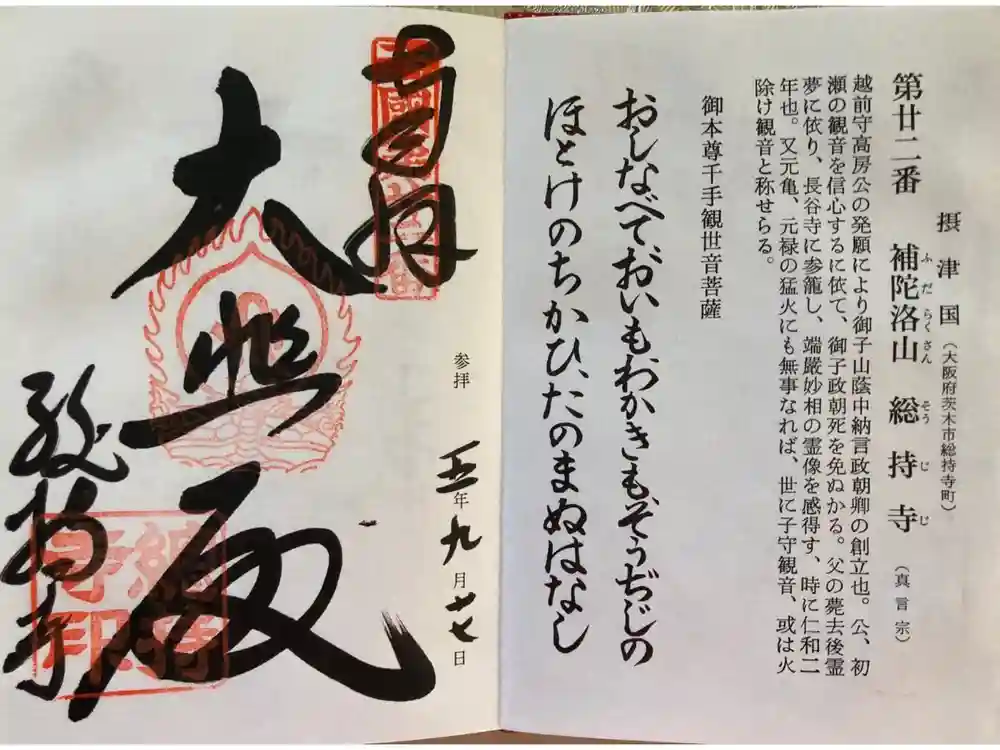 摂津国(大阪府茨木市総持寺町)
第廿二番 補陀洛山 総持寺(真言宗)
ふだらくさん そうじじ
越前守高房公の発願により御子山蔭中納言政朝卿の創立也。公、初
瀬の観音を信心するに依て、御子政朝死を免ぬかる。父の薨去後霊
夢に依り、長谷寺に参籠し、端厳妙相の霊像を感得す、時に仁和二
年也。又元亀、元禄の猛火にも無事なれば、世に子守観音、或は火
除け観音と称せらる。
御本尊千手観世音菩薩
おしなべておいもわかきもそうぢじの
ほとけのちかひ、たのまぬはなし
参拝 五年九月廿七日
奉拝
大悲殿
総持寺
總持
寺印